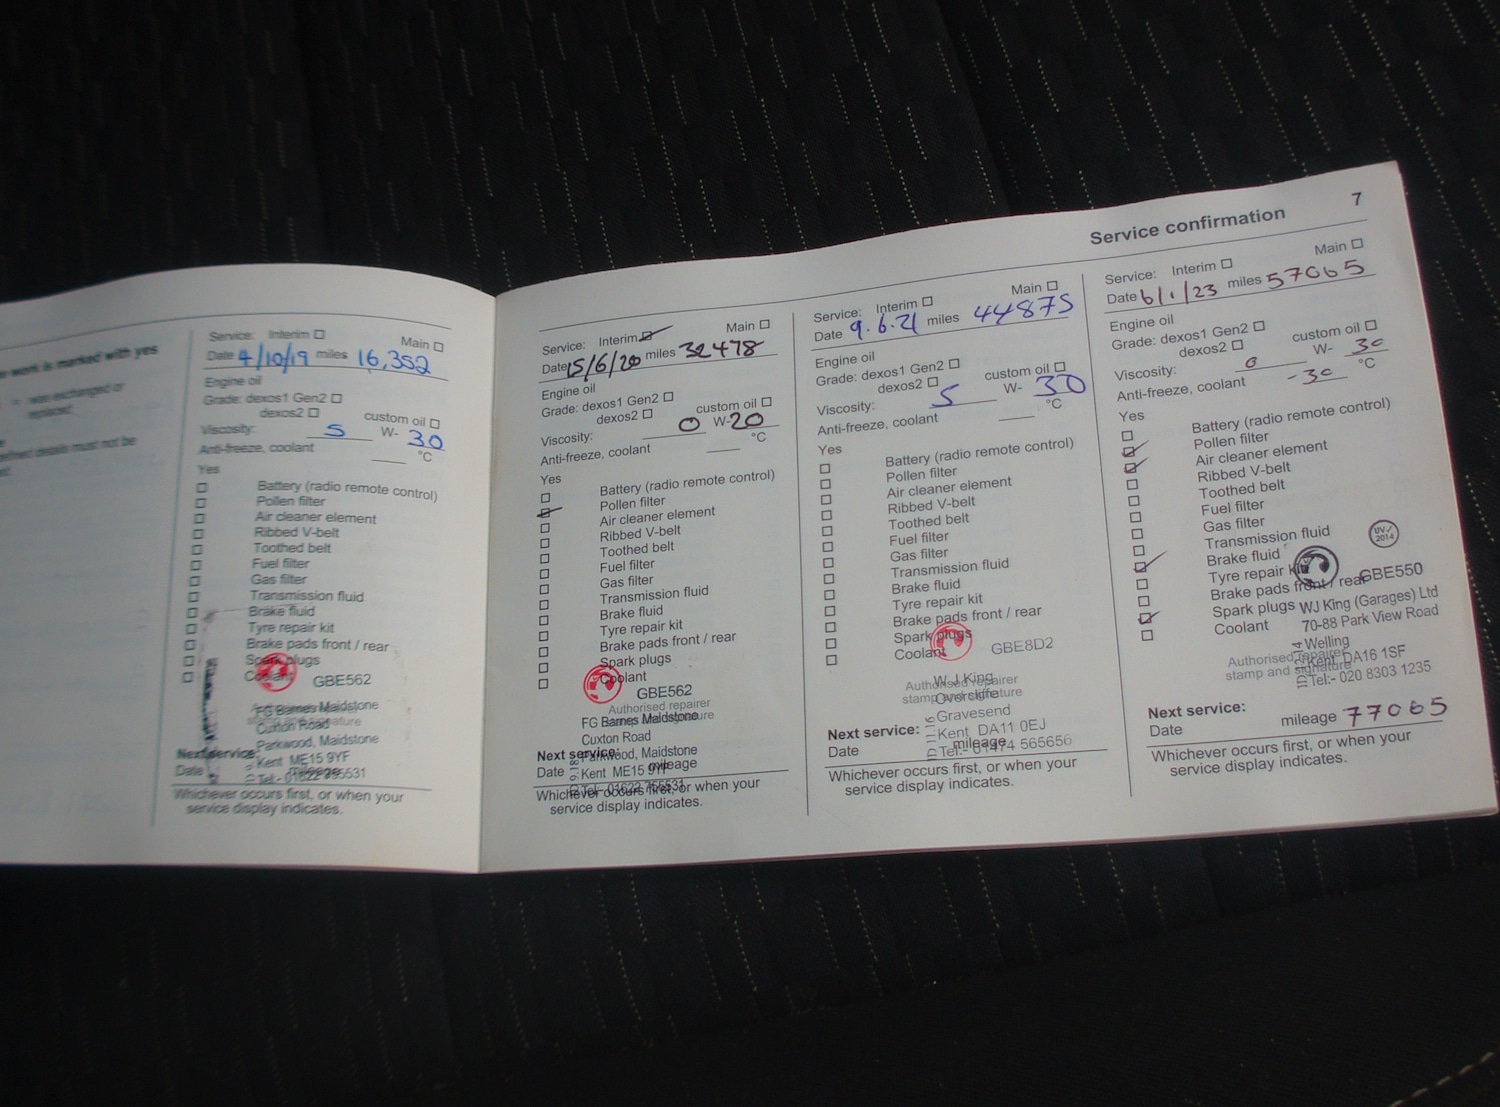 work is marked with yes
was exchanged or
replaced
details must not be
Service: Interim ☐ Main ☐
Date 4/10/19 miles 16,352
Engine oil
Grade: dexos1 Gen2 ☐
dexos2 ☐ custom oil ☐
Viscosity: 5 W- 30
Anti-freeze, coolant °C
Yes
☐ Battery (radio remote control)
☐ Pollen filter
☐ Air cleaner element
☐ Ribbed V-belt
☐ Toothed belt
☐ Fuel filter
☐ Gas filter
☐ Transmission fluid
☐ Brake fluid
☐ Tyre repair kit
☐ Brake pads front / rear
☐ Spark plugs
☐ Coolant
GBE562
FG Barnes Maidstone
Cuxton Road
Parkwood, Maidstone
Kent ME15 9YF
Next service:
Date mileage
Whichever occurs first, or when your
service display indicates.
Service confirmation 7
Service: Interim ☑ Main ☐
Date 15/6/20 miles 32478
Engine oil
Grade: dexos1 Gen2 ☐
dexos2 ☐ custom oil ☐
Viscosity: 0 W-20
Anti-freeze, coolant °C
Yes
☐ Battery (radio remote control)
☑ Pollen filter
☐ Air cleaner element
☐ Ribbed V-belt
☐ Toothed belt
☐ Fuel filter
☐ Gas filter
☐ Transmission fluid
☐ Brake fluid
☐ Tyre repair kit
☐ Brake pads front / rear
☐ Spark plugs
☐ Coolant
GBE562
Authorised repairer
FG Barnes Maidstone
Cuxton Road
Parkwood, Maidstone
Kent ME15 9YF
Next service:
Date mileage
Whichever occurs first, or when your
service display indicates.
Service: Interim ☐ Main ☐
Date 9.6.21 miles 44875
Engine oil
Grade: dexos1 Gen2 ☐
dexos2 ☐ custom oil ☐
Viscosity: 5 W- 30
Anti-freeze, coolant °C
Yes
☐ Battery (radio remote control)
☐ Pollen filter
☐ Air cleaner element
☐ Ribbed V-belt
☐ Toothed belt
☐ Fuel filter
☐ Gas filter
☐ Transmission fluid
☐ Brake fluid
☐ Tyre repair kit
☐ Brake pads front / rear
☐ Spark plugs
☐ Coolant
GBE8D2
Authorised repairer
stamp and signature
W J King
Overcliffe
Gravesend
Kent DA11 0EJ
Tel:- 01474 565656
Next service:
Date mileage
Whichever occurs first, or when your
service display indicates.
Service: Interim ☐ Main ☐
Date 6/1/23 miles 57065
Engine oil
Grade: dexos1 Gen2 ☐
dexos2 ☐ custom oil ☐
Viscosity: 0 W- 30
Anti-freeze, coolant -30 °C
Yes
☐ Battery (radio remote control)
☑ Pollen filter
☑ Air cleaner element
☐ Ribbed V-belt
☐ Toothed belt
☐ Fuel filter
☐ Gas filter
☐ Transmission fluid
☑ Brake fluid
☐ Tyre repair kit
☐ Brake pads front / rear
☑ Spark plugs
☐ Coolant
UV✓
2014
GBE550
WJ King (Garages) Ltd
70-88 Park View Road
Welling
Kent DA16 1SF
Tel:- 020 8303 1235
Authorised repairer
stamp and signature
Next service:
Date mileage 77065
Whichever occurs first, or when your
service display indicates.